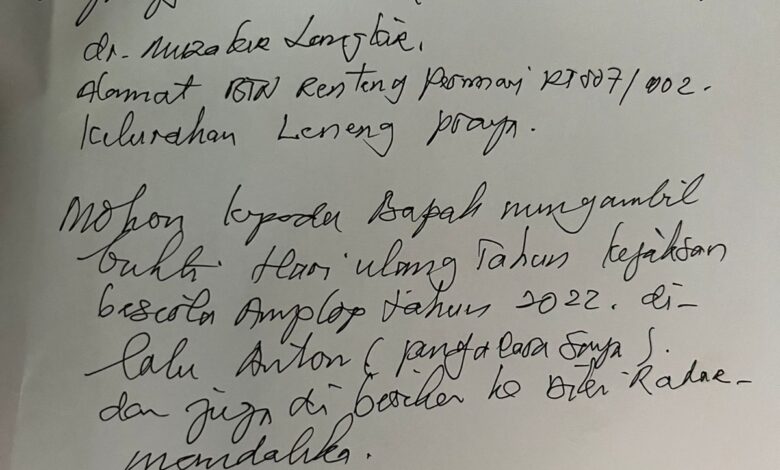 dr. Muzakir Langkir.
Alamat BTN Renteng Permai RT007/002.
Kelurahan Leneng Praya.
Mohon kepada Bapak mengambil
bukti Hari ulang Tahun Kejaksan
beserta Amplop tahun 2022. di-
lalu Anton (pengacara saya).
dan juga di ke Radar-
mandalika.